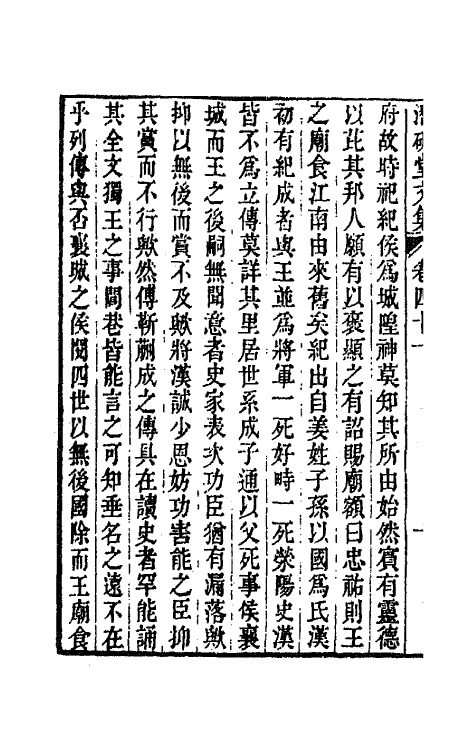 潛研堂文集 卷四十一
府故時祀紀侯爲城隍神莫知其所由始然實有靈德
以芘其邦人願有以褒顯之有詔賜廟額曰忠祐則王
之廟食江南由來舊矣紀出自姜姓子孫以國爲氏漢
初有紀成者與王並爲將軍一死好時一死滎陽史漢
皆不爲立傳莫詳其里居世系成子通以父死事侯襄
城而王之後嗣無聞意者史家表次功臣猶有漏落歟
抑以無後而賞不及歟將漢誠少恩妨功害能之臣抑
其賞而不行歟然傳靳蒯成之傳具在讀史者罕能誦
其全文獨王之事閭巷皆能言之可知垂名之遠不在
乎列傳與否襄城之侯閱四世以無後國除而王廟食